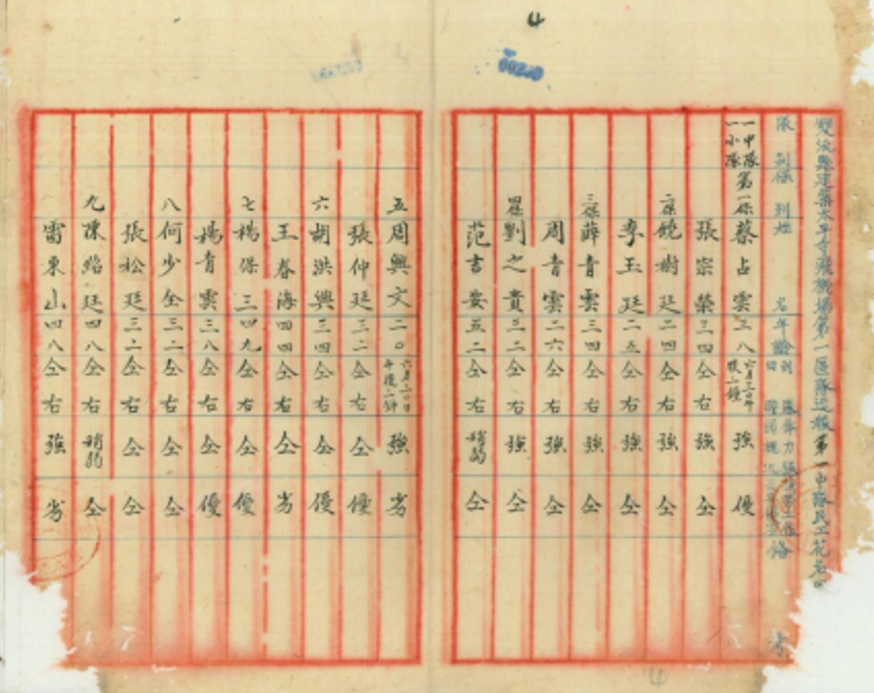 4
00200
雙流縣建築太平寺飛機場第一區隊造報第一中隊民工花名
隊別 保別 姓名 年齡 到 隊 日 體力強弱 備考
一中隊一小隊 第一保 蔡占雲 三八 強 優
張宗榮 三四 仝右 強 仝
二保 饒樹廷 二四 仝右 強 仝
李玉廷 二五 仝右 強 仝
三保 薛青雲 三四 仝右 強 仝
周青雲 二六 仝右 強 仝
四保 劉之貴 三二 仝右 強 仝
范書安 五二 仝右 稍弱 仝
五 周興文 二〇 六月二〇日午後二鐘 強 劣
張仲廷 三二 仝右 仝 優
六 胡洪興 三四 仝右 仝 優
王春海 四四 仝右 仝 劣
七 楊保三 四九 仝右 仝 優
楊青雲 三八 仝右 仝 優
八 何少全 三二 仝右 仝 仝
張松廷 三二 仝右 仝 仝
九 陳紹廷 四八 仝右 稍弱 仝
雷東山 四八 仝右 強 劣